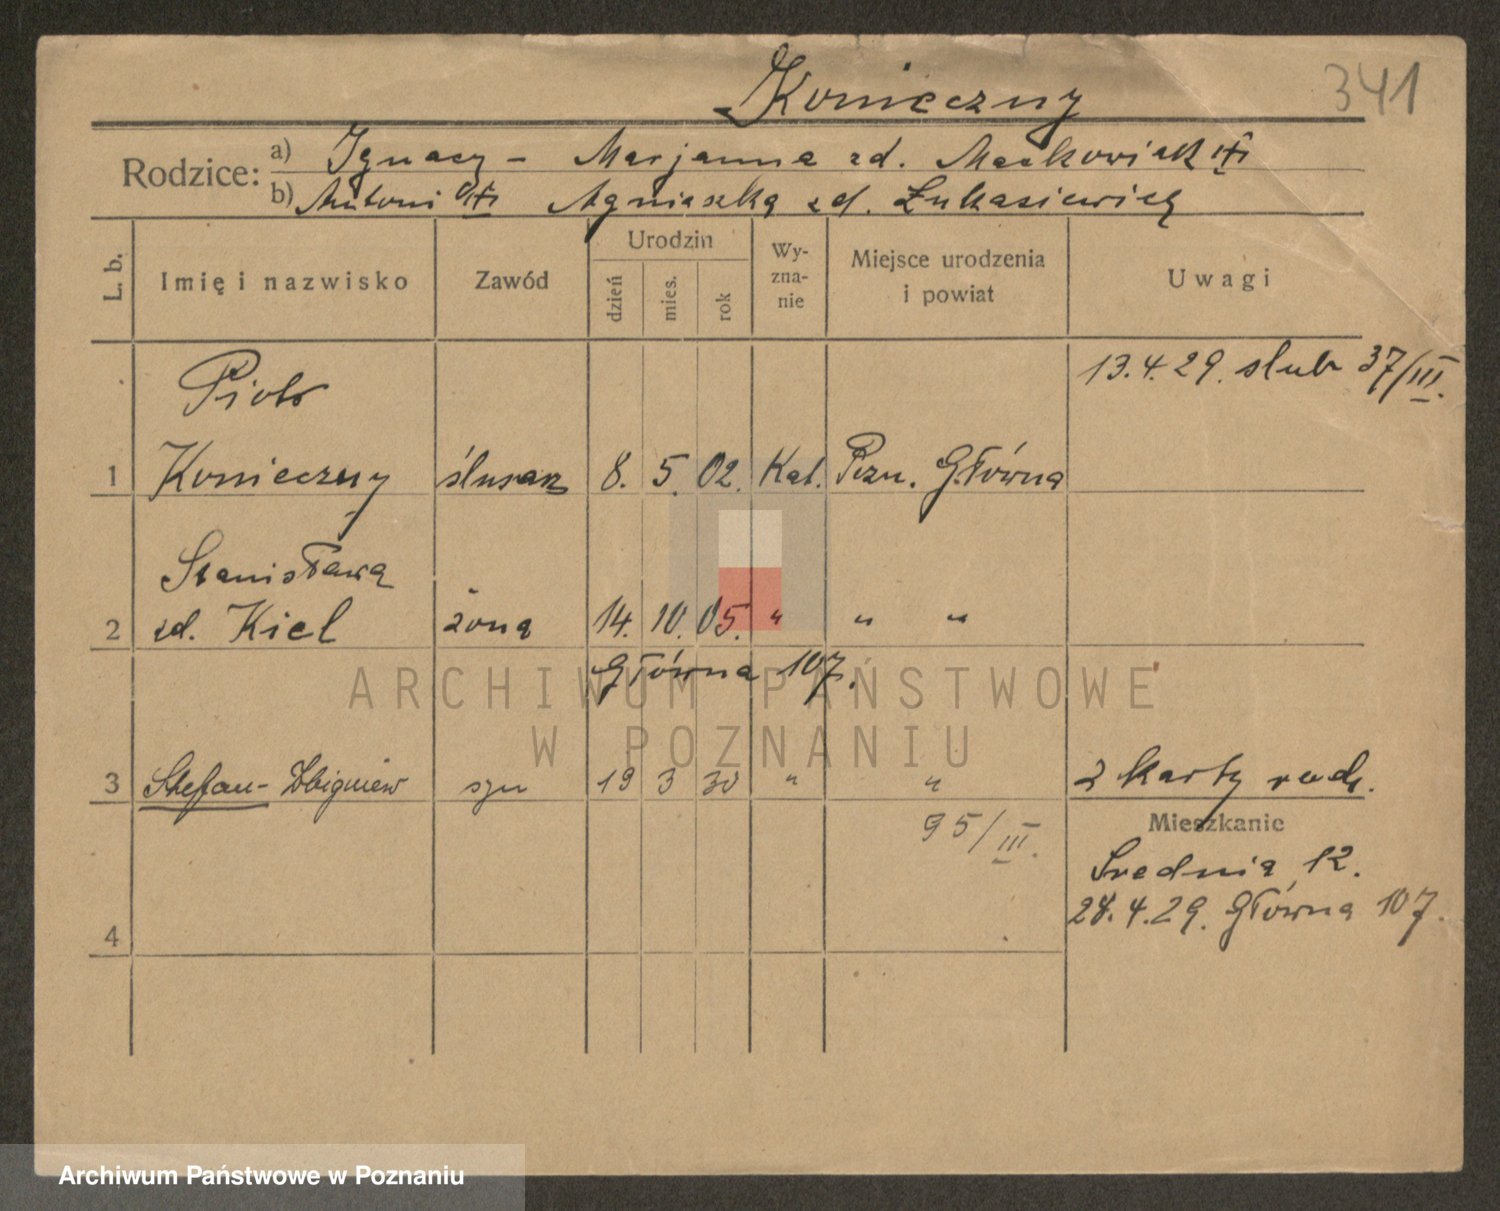 Konieczny
341
Rodzice: a) Ignacy - Marjanna zd. Maćkowiak
b) Antoni Agnieszka zd. Łukasiewicz
L. b. Imię i nazwisko Zawód Urodzin dzień mies. rok Wy-zna-nie Miejsce urodzenia i powiat Uwagi
13.4.29. slub 37/III.
Piotr
1 Konieczny ślusarz 8. 5. 02. Kat. Pozn. Główna
Stanisława
2 zd. Kiel żona 14. 10. 05. " " "
Główna 107.
ARCHIWUM PAŃSTWOWE
W POZNANIU
3 Stefan-Zbigniew syn 19 3 30 " " 2 karty rodz.
95/III.
Mieszkanie
Srednia 12.
28.4.29. Główna 107.
4
Archiwum Państwowe w Poznaniu